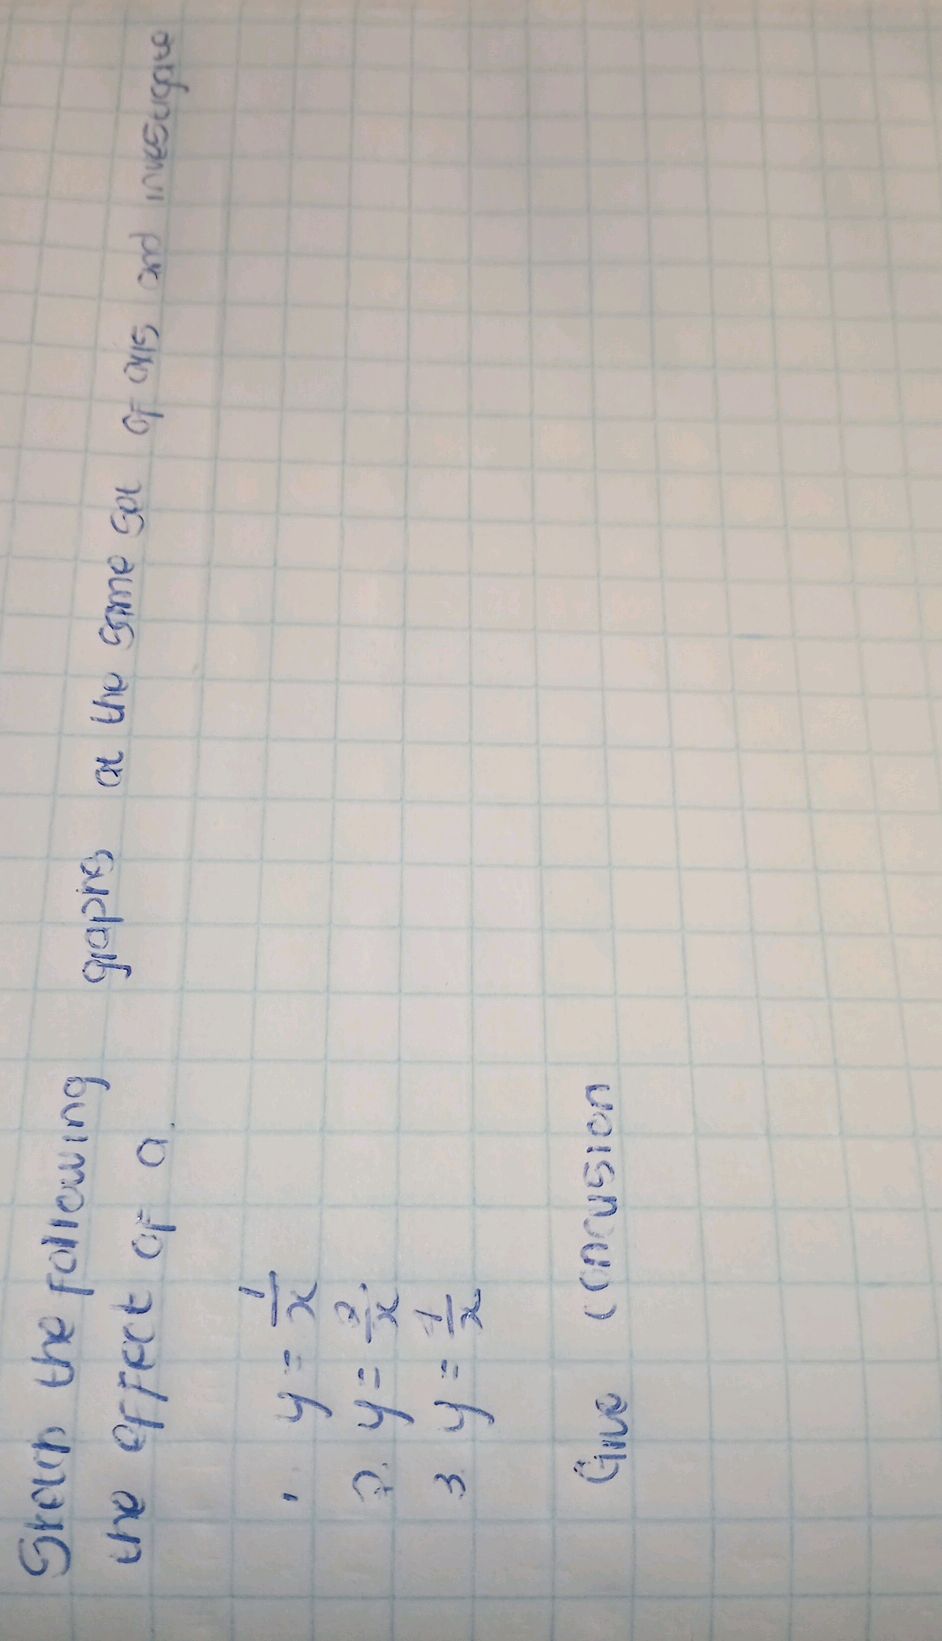 Sketch the following graphs at the same set of axis and investigate
the effect of a.
1. y = 1/x
2. y = 2/x
3. y = -1/x
Give concusion